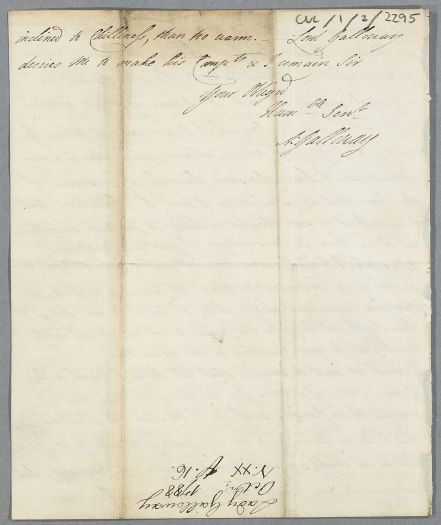 CUL/1/2/2295
inclined to Chillness, than too warm. Lord Galloway
desires me to make his Compts & I remain Sir
Your Obliged
Humble Servt
A: Galloway
Lady Galloway
Octbr 1788
N. XX p. 16